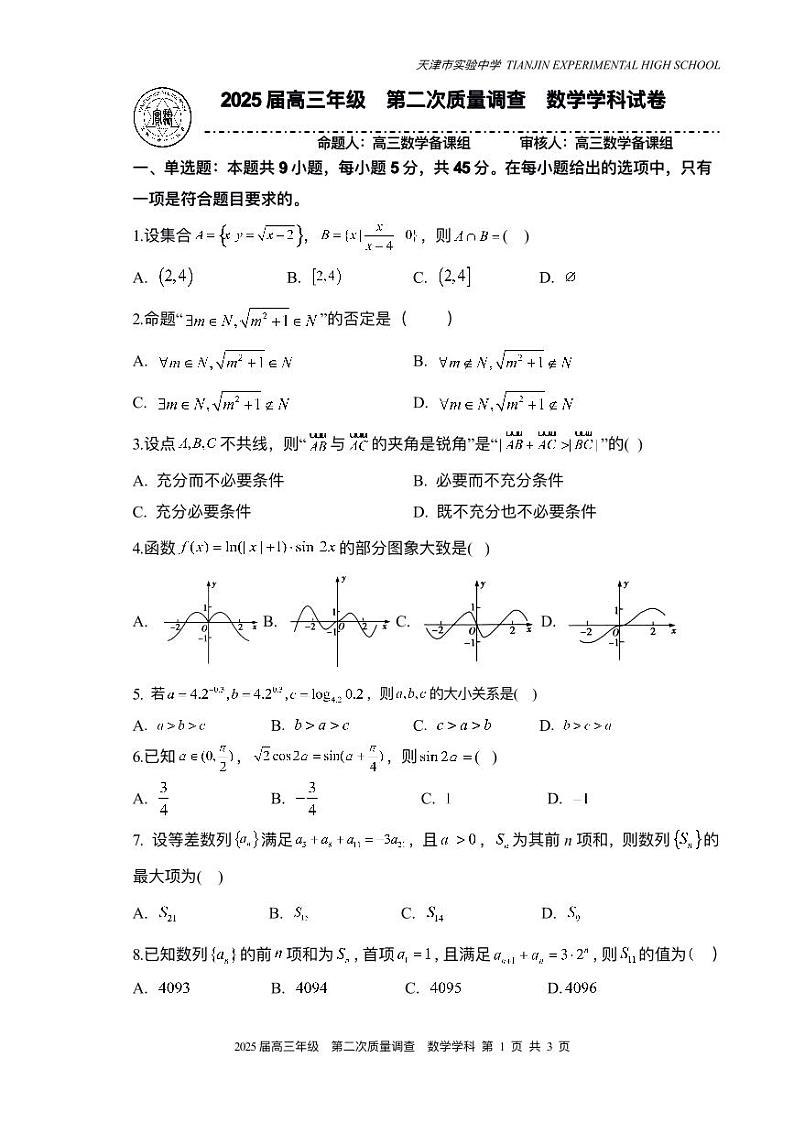 天津市实验中学 TIANJIN EXPERIMENTAL HIGH SCHOOL
2025 届高三年级 第二次质量调查 数学学科试卷
命题人：高三数学备课组 审核人：高三数学备课组
一、单选题：本题共 9 小题，每小题 5 分，共 45 分。在每小题给出的选项中，只有
一项是符合题目要求的。
1.设集合 A = {x y = √(x−2)}, B = {x | x/(x−4) 0}，则 A ∩ B = ( )
A. (2,4) B. [2,4) C. (2,4] D. ∅
2.命题“∃m ∈ N, √(m²+1) ∈ N”的否定是（ ）
A. ∀m ∈ N, √(m²+1) ∈ N B. ∀m ∉ N, √(m²+1) ∉ N
C. ∃m ∈ N, √(m²+1) ∉ N D. ∀m ∈ N, √(m²+1) ∉ N
3.设点 A,B,C 不共线，则“AB 与 AC 的夹角是锐角”是“| AB + AC >| BC |”的( )
A. 充分而不必要条件 B. 必要而不充分条件
C. 充分必要条件 D. 既不充分也不必要条件
4.函数 f(x) = ln(| x |+1)·sin 2x 的部分图象大致是( )
A. y 1 −2 O 2 x −1 B. y 1 −2 −1 O 2 x C. y 1 −2 O 2 x −1 D. y 1 −2 O 2 x −1
5. 若 a = 4.2^−0.3, b = 4.2^0.2, c = log_4.2 0.2，则 a,b,c 的大小关系是( )
A. a > b > c B. b > a > c C. c > a > b D. b > c > a
6.已知 α ∈ (0, π/2)，√2 cos2α = sin(α + π/4)，则 sin 2α = ( )
A. 3/4 B. −3/4 C. 1 D. −1
7. 设等差数列{aₙ}满足 a₅ + a₈ + a₁₁ = −3a₂，且 a > 0，Sₙ 为其前 n 项和，则数列{Sₙ}的
最大项为( )
A. S₂₁ B. S₁₅ C. S₁₄ D. S₉
8.已知数列{aₙ}的前 n 项和为 Sₙ,首项 a₁ = 1,且满足 aₙ₊₁ + aₙ = 3·2ⁿ,则 S₁₁ 的值为( )
A. 4093 B. 4094 C. 4095 D. 4096
2025 届高三年级 第二次质量调查 数学学科 第 1 页 共 3 页